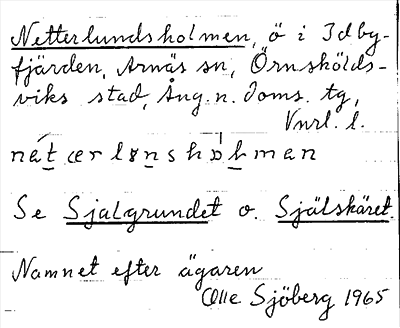 Netterlundsholmen, ö i Idby-
fjärden, Arnäs sn, Örnskölds-
viks stad, Ång. n. doms. tg,
Vnrl. l.
nátærlɵnshɔ̍lman
Se Sjalgrundet o. Själskäret.
Namnet efter ägaren
Olle Sjöberg 1965